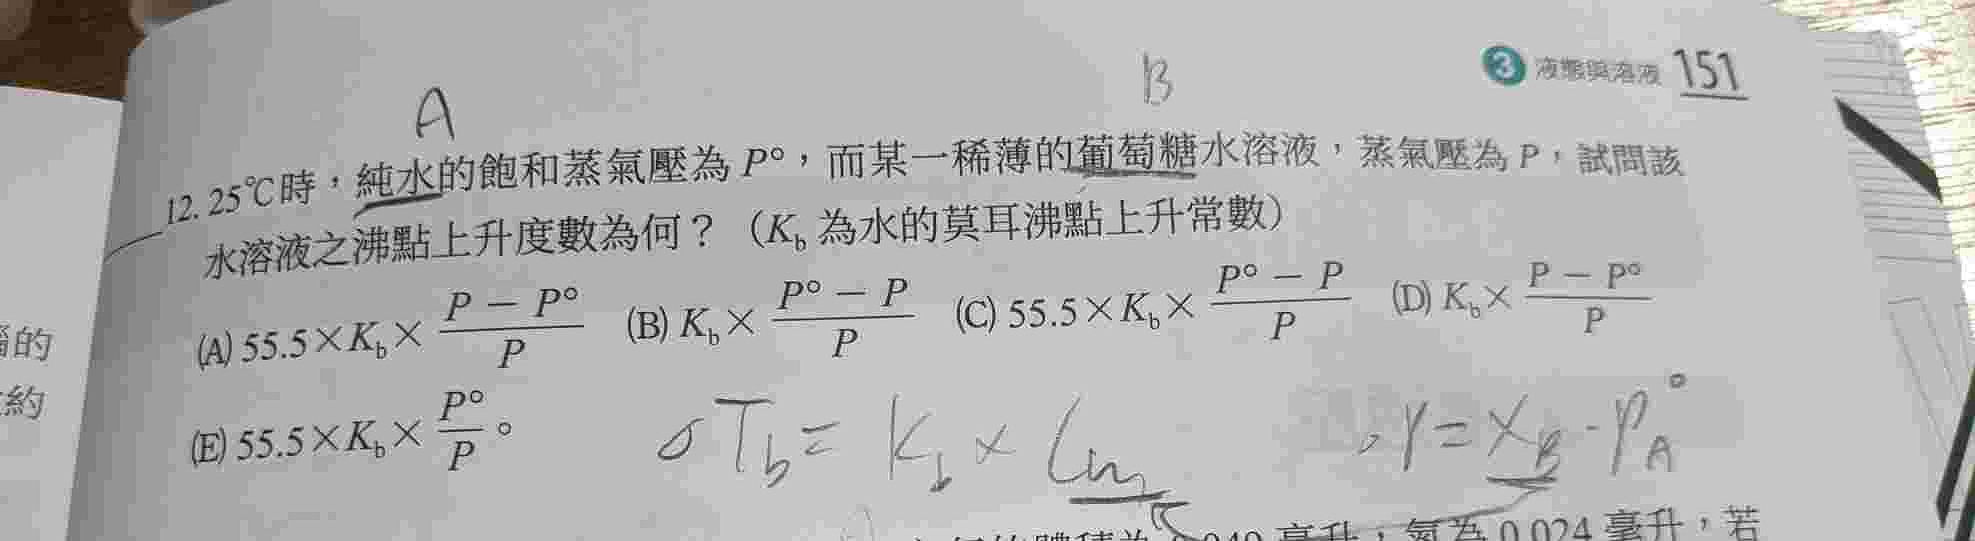 3 液態與溶液 151
A
B
12. 25℃時，純水的飽和蒸氣壓為 P°，而某一稀薄的葡萄糖水溶液，蒸氣壓為 P，試問該
水溶液之沸點上升度數為何？（Kb 為水的莫耳沸點上升常數）
(A) 55.5×Kb×(P − P°)/P (B) Kb×(P° − P)/P (C) 55.5×Kb×(P° − P)/P (D) Kb×(P − P°)/P
(E) 55.5×Kb×P°/P。
ΔTb = Kb × Cm
P = XB · PA°
的
約
毫升，氮為 0.024 毫升，若